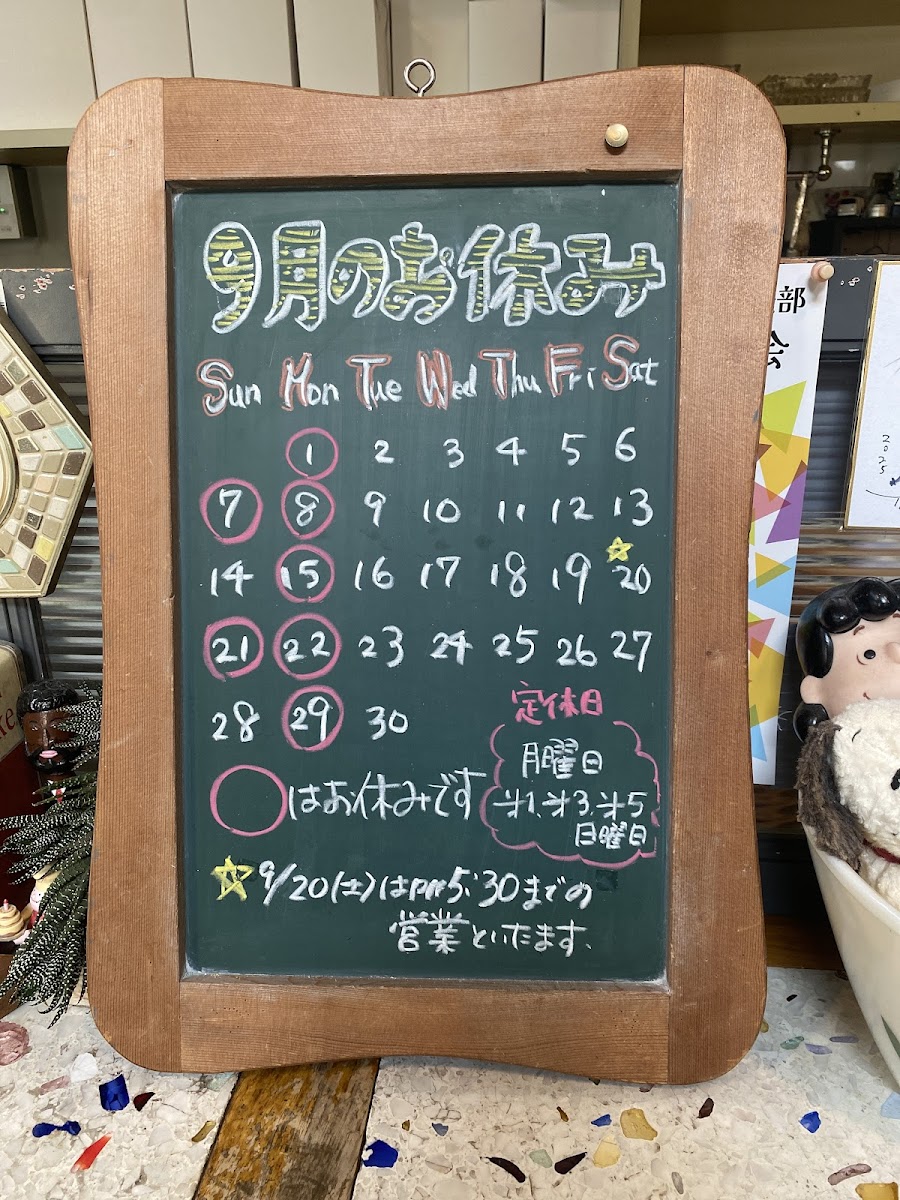 9月のお休み
Sun Mon Tue Wed Thu Fri Sat
1 2 3 4 5 6
7 8 9 10 11 12 13
14 15 16 17 18 19 20
21 22 23 24 25 26 27
28 29 30
定休日
月曜日
㐧1、㐧3、㐧5
日曜日
はお休みです
9/20(土)はPM5:30までの
営業といたます、
部
会
2025